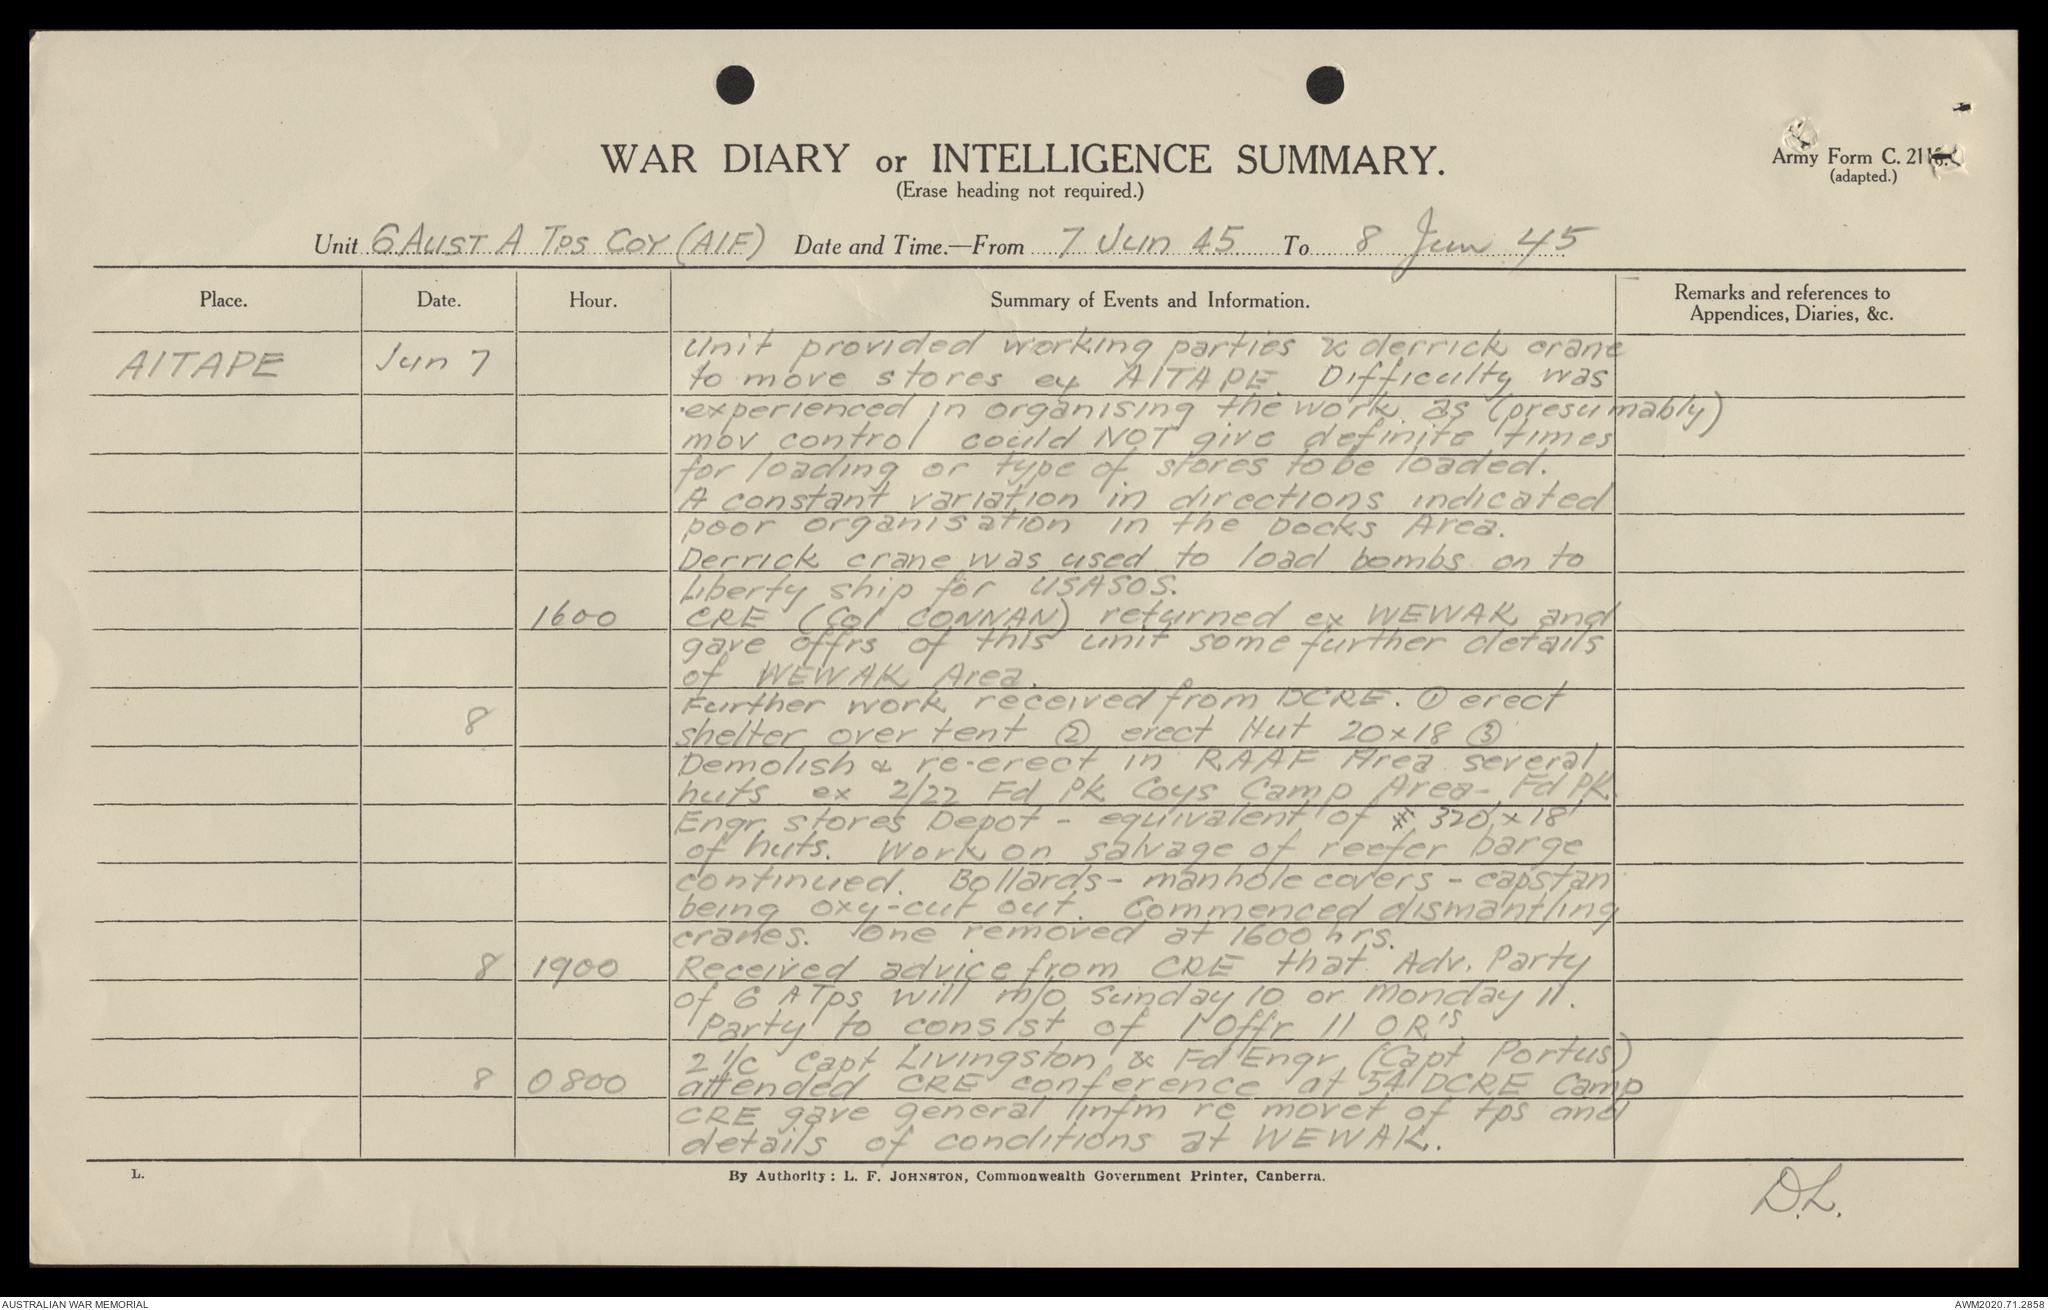 WAR DIARY or INTELLIGENCE SUMMARY.
(Erase heading not required.)
Army Form C. 2118.
(adapted.)
Unit 6 AUST A TPS COY (AIF) Date and Time.—From 7 JUN 45 To 8 Jun 45
Place. Date. Hour. Summary of Events and Information. Remarks and references to Appendices, Diaries, &c.
AITAPE Jun 7 Unit provided working parties & derrick crane
to move stores ex AITAPE. Difficulty was
experienced in organising the work as (presumably)
mov control could NOT give definite times
for loading or type of stores to be loaded.
A constant variation in directions indicated
poor organisation in the Docks Area.
Derrick crane was used to load bombs on to
Liberty ship for USASOS.
1600 CRE (Col CONNAN) returned ex WEWAK and
gave offrs of this unit some further details
of WEWAK Area.
8 Further work received from DCRE. ① erect
shelter over tent ② erect Hut 20x18 ③
Demolish & re-erect in RAAF Area several
huts ex 2/22 Fd Pk Coys Camp Area - Fd PK.
Engr stores Depot - equivalent of 320' x 18'
of huts. Work on salvage of reefer barge
continued. Bollards - manhole covers - capstan
being oxy-cut out. Commenced dismantling
cranes. One removed at 1600 hrs.
8 1900 Received advice from CRE that Adv. Party
of 6 A Tps will m/o Sunday 10 or Monday 11.
Party to consist of 1 Offr 11 OR's
2 i/c Capt Livingston & Fd Engr (Capt Portus)
8 0800 attended CRE conference at 54 DCRE Camp
CRE gave general infm re movet of tps and
details of conditions at WEWAK.
L.
By Authority: L. F. JOHNSTON, Commonwealth Government Printer, Canberra.
D.L.
AUSTRALIAN WAR MEMORIAL
AWM2020.71.2858